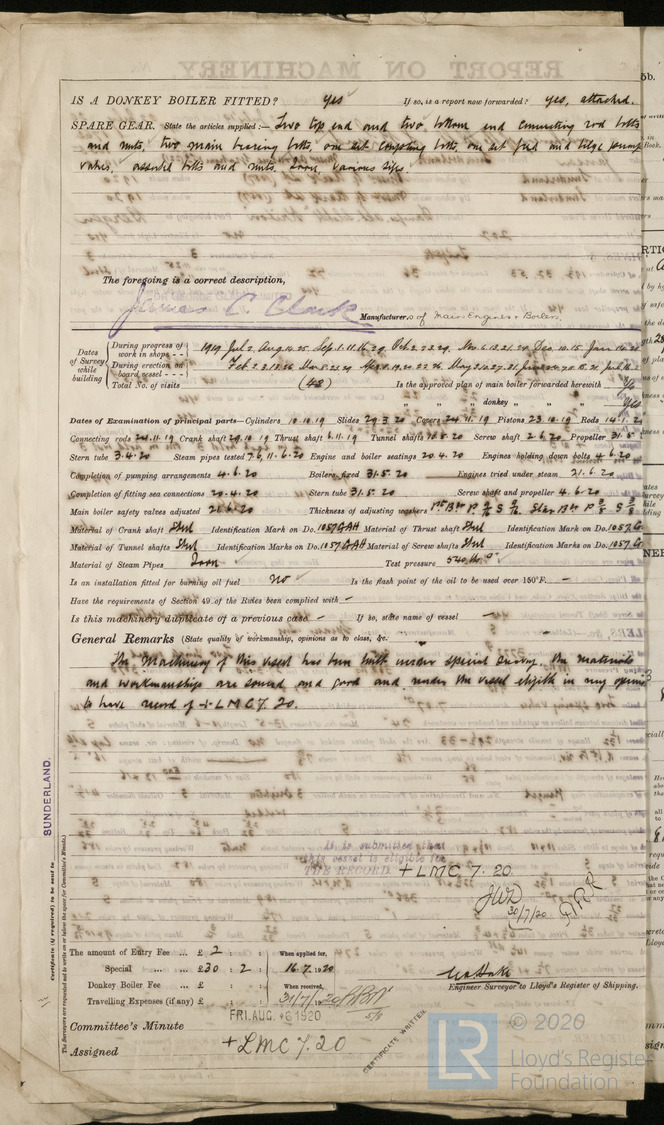 IS A DONKEY BOILER FITTED? Yes If so, is a report now forwarded? Yes, attached.
SPARE GEAR. State the articles supplied:— Two top end and two bottom end connecting rod bolts
and nuts, two main bearing bolts, one set coupling bolts, one set feed and bilge pump
valves, assorted bolts and nuts. Iron, various sizes.
The foregoing is a correct description,
James C. Clark
Manufacturers of Main Engines & Boilers.
Dates of Survey while building
During progress of work in shops - - 1919 July 2. Aug. 14. 25. Sep. 1. 11. 16. 29. Oct. 2. 23. 29. Nov. 6. 13. 21. 24. Dec. 10. 15. Jan.
During erection on board vessel - - -
Total No. of visits (48) Is the approved plan of main boiler forwarded herewith
" " " donkey " " " Yes
Dates of Examination of principal parts—Cylinders 10.10.19 Slides 29.3.20 Covers 24.11.19 Pistons 23.10.19 Rods 14.1.20
Connecting rods 24.11.19 Crank shaft 29.10.19 Thrust shaft 6.11.19 Tunnel shafts Screw shaft 2.6.20 Propeller 31.5
Stern tube 3.4.20 Steam pipes tested 7.6, 11.6.20 Engine and boiler seatings 20.4.20 Engines holding down bolts 4.6.20
Completion of pumping arrangements 4.6.20 Boilers fixed 31.5.20 Engines tried under steam 21.6.20
Completion of fitting sea connections 20.4.20 Stern tube 31.5.20 Screw shaft and propeller 4.6.20
Main boiler safety valves adjusted 21.6.20 Thickness of adjusting washers
Material of Crank shaft Steel Identification Mark on Do. 1057GAH Material of Thrust shaft Steel Identification Mark on Do. 1057 G
Material of Tunnel shafts Steel Identification Marks on Do. 1057GAH Material of Screw shafts Steel Identification Marks on Do. 1057 G
Material of Steam Pipes Iron Test pressure 540 lb
Is an installation fitted for burning oil fuel No Is the flash point of the oil to be used over 150°F. —
Have the requirements of Section 49 of the Rules been complied with —
Is this machinery duplicate of a previous case — If so, state name of vessel —
General Remarks (State quality of workmanship, opinions as to class, &c.
The Machinery of this vessel has been built under special survey. The materials
and workmanship are sound and good and render the vessel eligible in my opinion
to have record of + LMC 7. 20.
SUNDERLAND.
Certificate (if required) to be sent to
The Surveyors are requested not to write on or below the space for Committee's Minute.
It is submitted that
this vessel is eligible for
THE RECORD. + LMC 7. 20
30/7/20
The amount of Entry Fee ... £ 2 : : When applied for,
Special ... ... £ 30 : 2 : 16.7.1920
Donkey Boiler Fee ... £ : : When received,
Travelling Expenses (if any) £ : : 31/7/1920
Engineer Surveyor to Lloyd's Register of Shipping.
Committee's Minute FRI. AUG. 6 1920
Assigned + LMC 7. 20
CERTIFICATE WRITTEN
LR © 2020
Lloyd's Register
Foundation